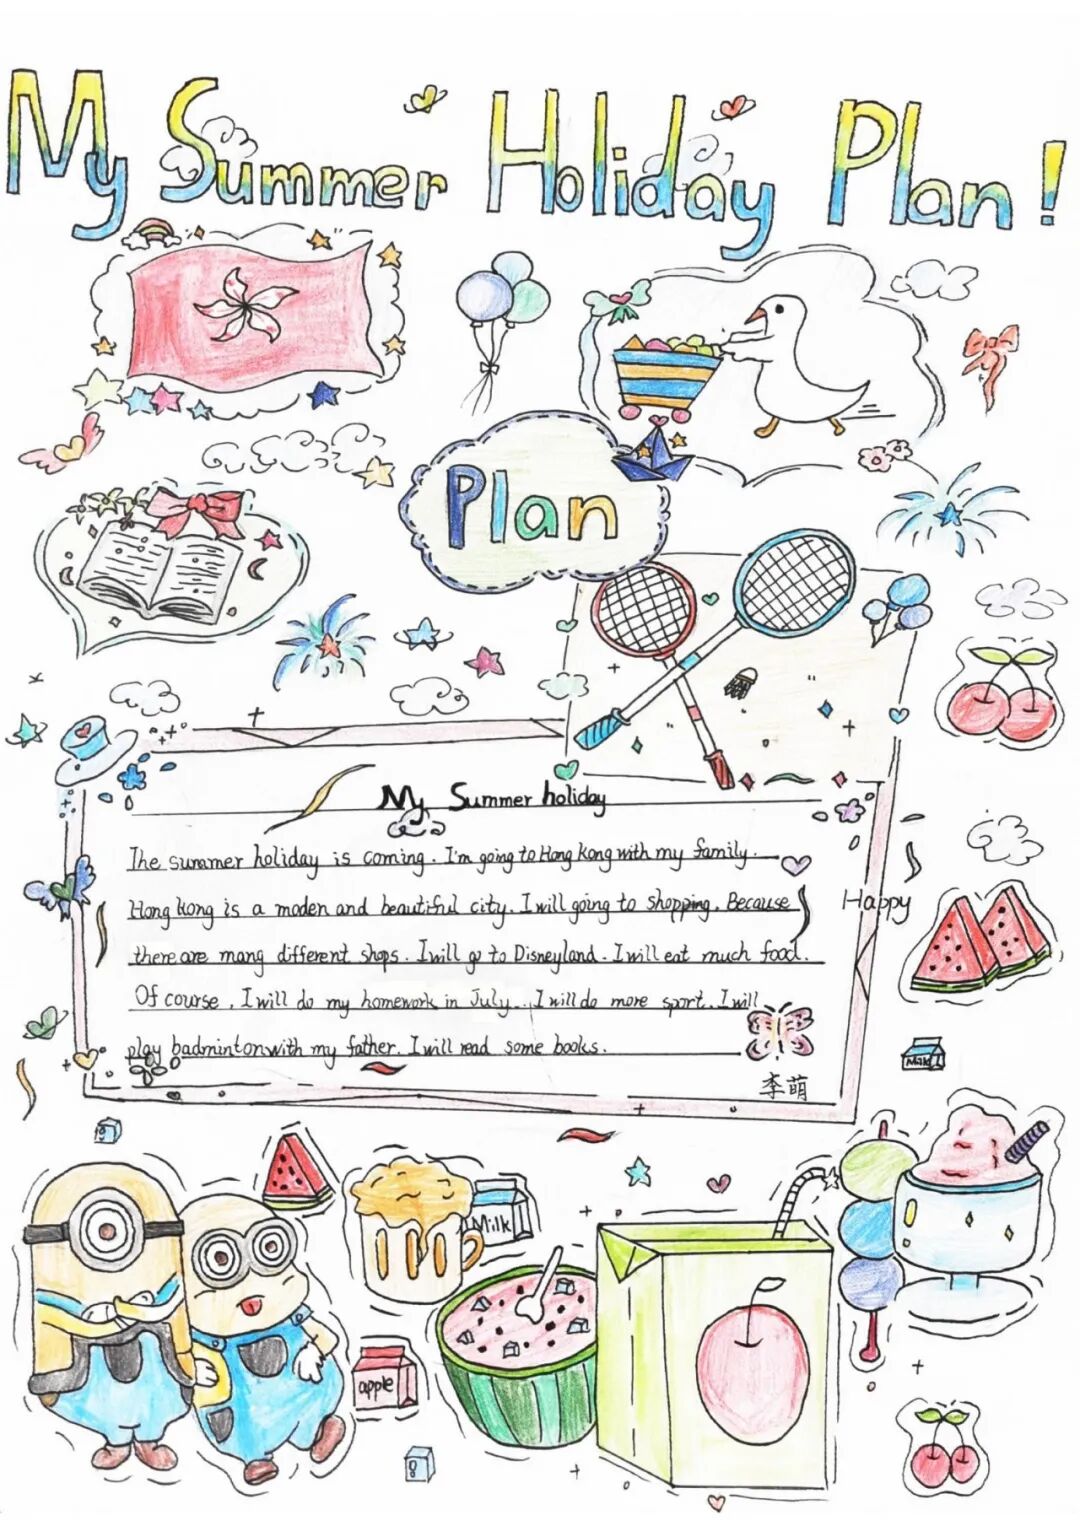 My Summer Holiday Plan!
Plan
My Summer holiday
The summer holiday is coming. I'm going to Hong Kong with my family.
Hong Kong is a moden and beautiful city. I will going to shopping. Because
there are many different shops. I will go to Disneyland. I will eat much food.
Of course, I will do my homework in July... I will do more sport. I will
play badminton with my father. I will read some books.
李萌
Happy
Milk
Milk
apple